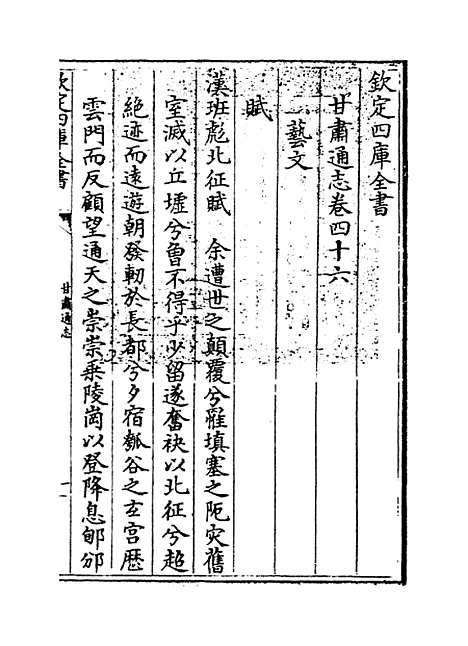 欽定四庫全書
甘肅通志卷四十六
藝文
賦
漢班彪北征賦 余遭世之顛覆兮罹填塞之阨灾舊
室滅以丘墟兮曾不得乎少留遂奮袂以北征兮超
絶迹而遠遊朝發軔於長都兮夕宿瓠谷之𤣥宫歴
雲門而反顧望通天之崇崇乗陵崗以登降息郇邠
欽定四庫全書
甘肅通志
一